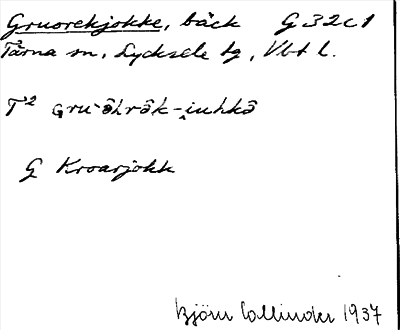 Gruorekjokke, bäck G 32 c 1
Tärna sn, Lycksele lg, Vbt l.
T² Gru-åhråk-juhkå
G Kroarjokk
Björn Collinder 1937